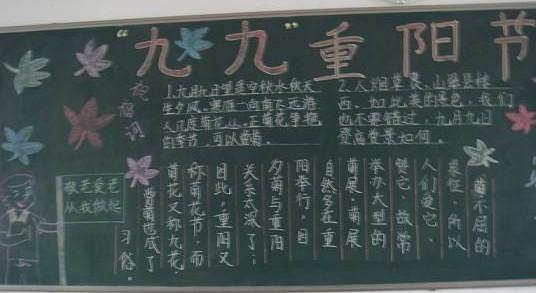 “九九重阳节
1.九月九日望遥空,秋水秋天
生夕风。寒雁一向南飞远,游
人几度菊花丛。正菊花争艳
的季节,可以赏菊。
2.人烟
西。如此美的景色,我们
也不要错过,九月九日
登高赏景如何。
菊不屈的
象征,所以
人们爱它、
赞它,故常
举办大型的
菊展。菊展
自然多在重
阳举行,因
菊与重阳
关系太深了;
因此,重阳又
称菊花节,而
菊花又称九花。
赏菊也成了
习俗。
敬老爱老
从我做起